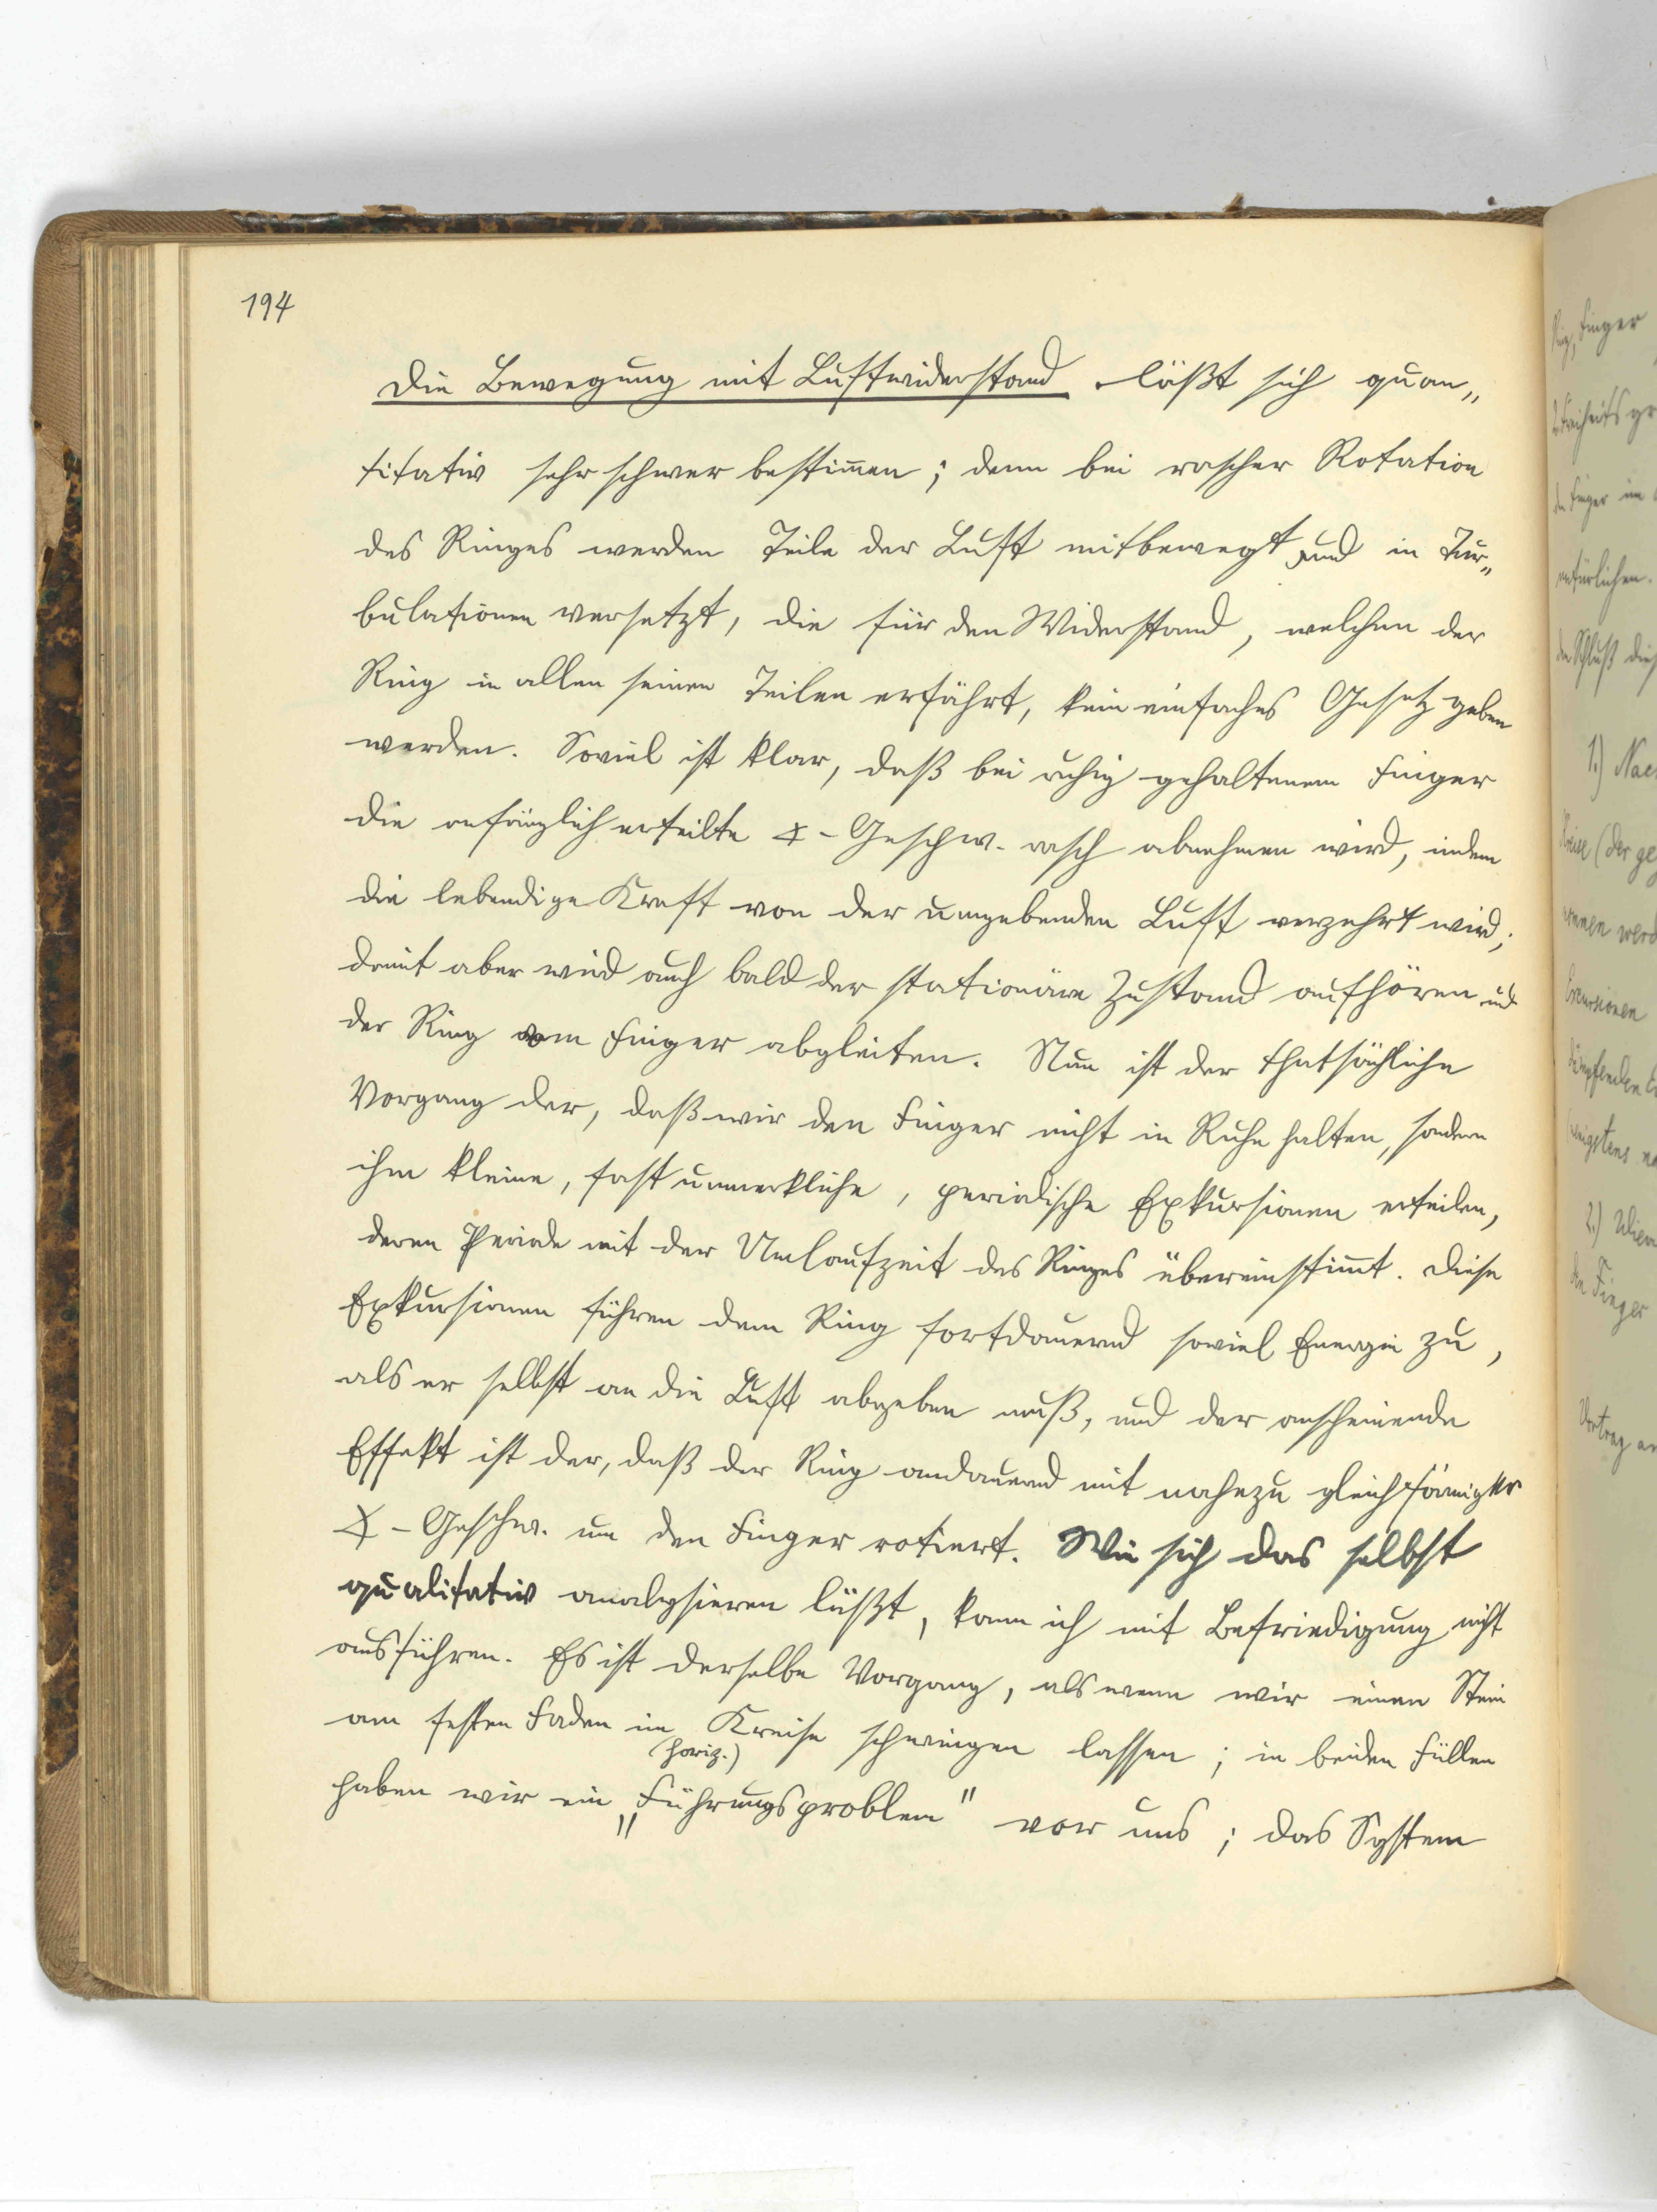 194
Die Bewegung mit Luftwiderstand läßt sich quan„
titativ sehr schwer bestim̄en; denn bei rascher Rotation
des Ringes werden Teile der Luft mitbewegt und in Tur„
bulationen versetzt, die für den Widerstand, welchen der
Ring in allen seinen Teilen erfährt, kein einfaches Gesetz geben
werden. Soviel ist klar, daß bei ruhig gehaltenem Finger
die anfänglich erteilte ∢-Geschw. rasch abnehmen wird, indem
die lebendige Kraft von der umgebenden Luft verzehrt wird;
damit aber wird auch bald der stationäre Zustand aufhören und
der Ring vom Finger abgleiten. Nun ist der thatsächliche
Vorgang der, daß wir den Finger nicht in Ruhe halten, sondern
ihm kleine, fast unmerkliche, periodische Exkursionen erteilen,
deren Periode mit der Umlaufzeit des Ringes übereinstim̄t. Diese
Exkursionen führen dem Ring fortdauernd soviel Energie zu,
als er selbst an die Luft abgeben muß, und der anscheinende
Effekt ist der, daß der Ring andauernd mit nahezu gleichförmiger
∢-Geschw. um den Finger rotiert. Wie sich das selbst
qualitativ analysieren läßt, kann ich mit Befriedigung nicht
ausführen. Es ist derselbe Vorgang, als wenn wir einen Stein
am festen Faden im Kreise schwingen lassen; in beiden Fällen
(horiz.)
haben wir ein „Führungsproblem" vor uns; das System
Ring, Finger
Freiheitsgr
den Finger im
natürlichen.
den Schluß dies
1.) Nac
Kreise (der ge
werd
Excursionen
wenigstens
2.)
den Finger
Vortrag